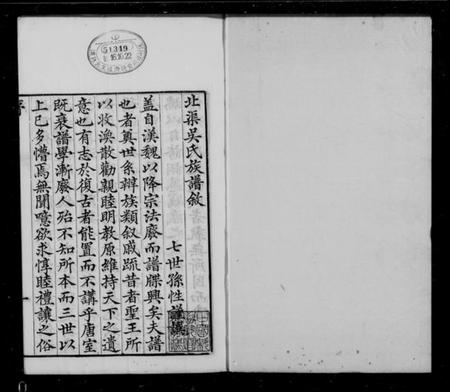 北渠吳氏族譜敘
七世孫性謹譔
蓋自漢魏以降宗法廢而譜牒興矣夫譜
也者奠世系辨族類叙戚疏昔者聖王所
以收渙散勸親睦明教原維持天下之遺
意也有志於復古者能置而不講乎唐室
既衰譜學漸廢人殆不知所本而三世以
上已多懵焉無聞噫欲求惇睦禮讓之俗
序
一
1349